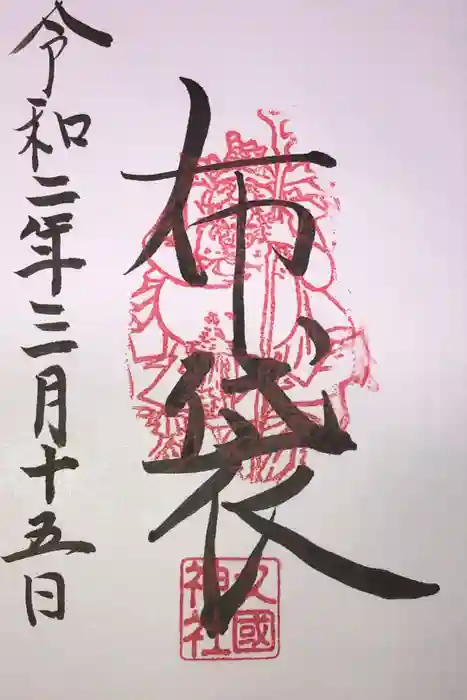 布袋
久國
神社
令和二年三月十五日